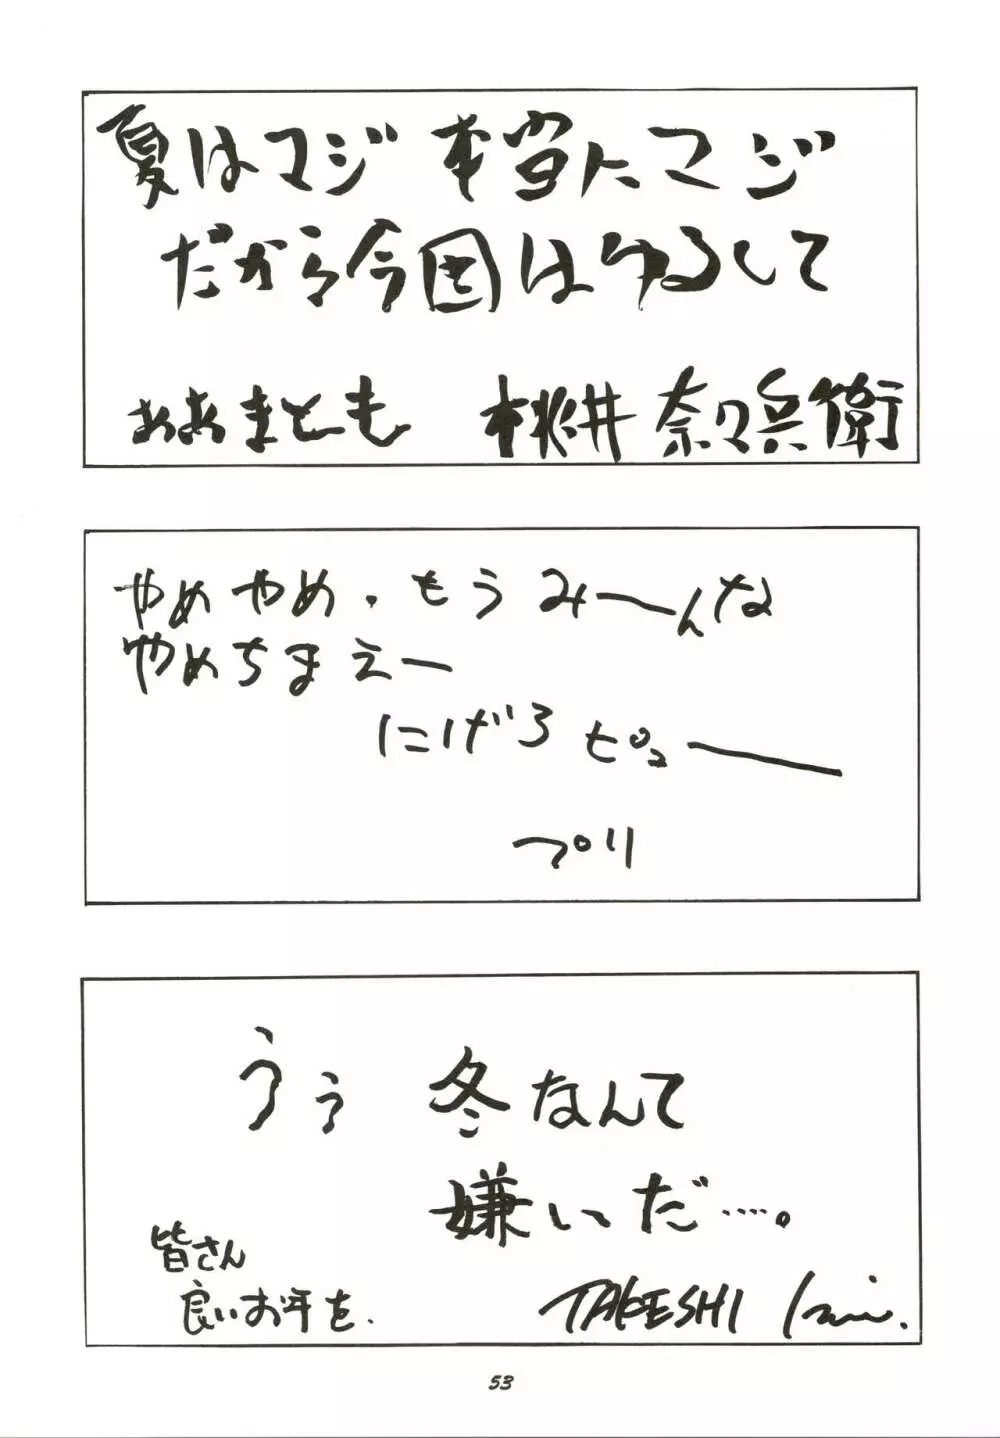 夏はマジ 本当にマジ
だから今回はゆるして
ああまとも 桃井 奈々兵衛
やめやめ、もうみーんな
やめちまえー
にげろ ピューー
プリ
うぅ 冬なんて
嫌いだ……。
皆さん
良いお年を.
TAKESHI
53